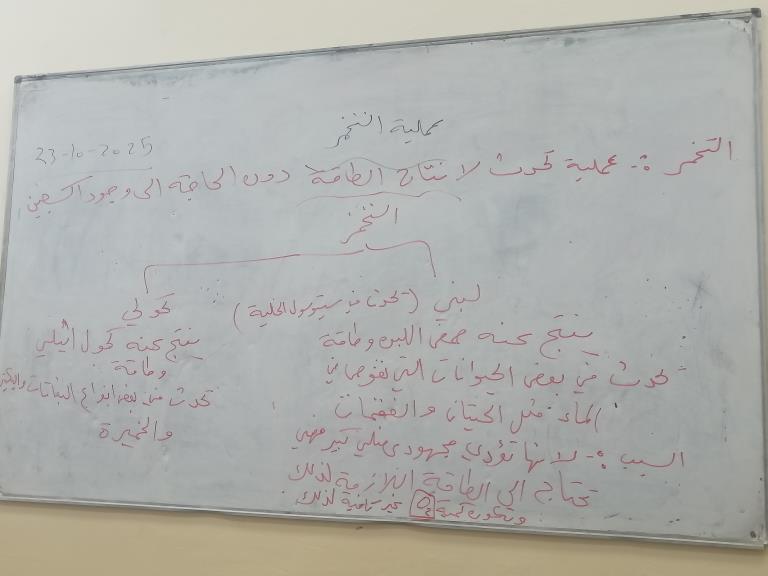 عملية التخمر
23-10-2025
التخمر :- عملية تحدث لانتاج الطاقة دون الحاجة الى وجود اكسجين
التخمر
لبني (تحدث في سيتوسول الخلية)
ينتج عنه حمض اللبن وطاقة
تحدث في بعض الحيوانات التي تغوص في
الماء مثل الحيتان والفقمات
السبب :- لانها تؤدي مجهود عضلي كبير فهي
تحتاج الى الطاقة اللازمة لذلك
وتكون كمية O2 غير كافية لذلك
كحولي
ينتج عنه كحول اثيلي
وطاقة
تحدث في بعض انواع النباتات والبكتيريا
والخميرة